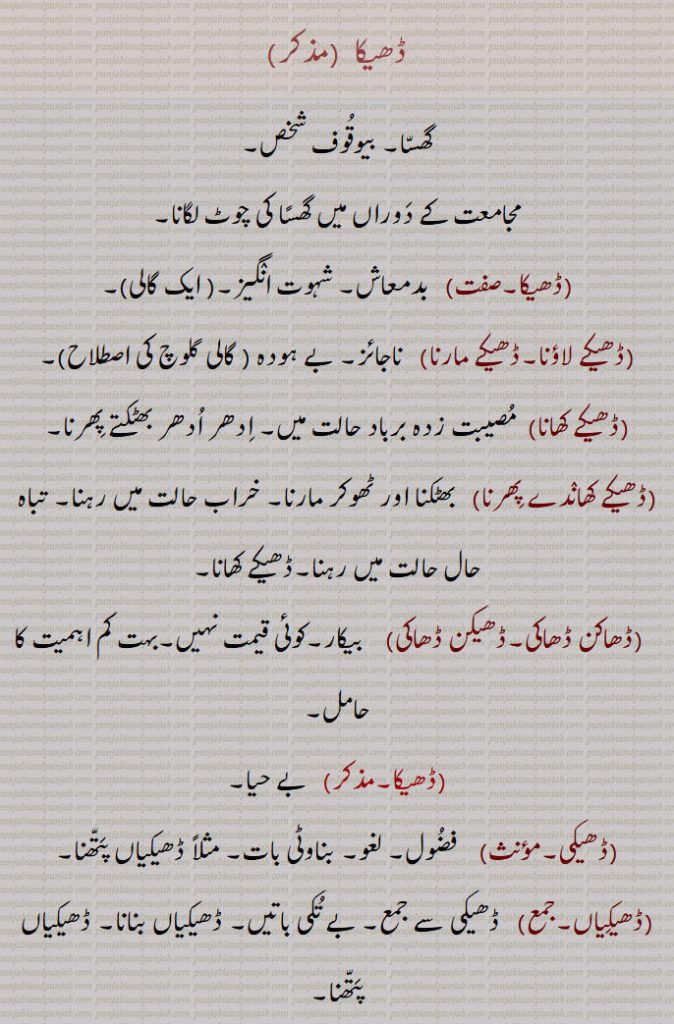 ڈھیکا (مذکر)
گھسّا۔ بیوقُوف شخص۔
مجامعت کے دَوراں میں گھسًا کی چوٹ لگانا۔
(ڈھیکا۔صفت) بدمعاش۔ شہوت انگیز۔( ایک گالی)۔
(ڈھیکے لاؤنا۔ڈھیکے مارنا) ناجائز۔ بے ہودہ ( گالی گلوچ کی اصطلاح)۔
(ڈھیکے کھانا) مُصیبت زدہ برباد حالت میں۔ اِدھر اُدھر بھٹکتے پِھرنا۔
(ڈھیکے کھانْدے پِھرنا) بھٹکنا اور ٹھوکر مارنا۔ خراب حالت میں رہنا۔ تباہ
حال حالت میں رہنا۔ڈھیکے کھانا۔
(ڈھاکن ڈھاکی۔ڈھیکن ڈھاکی) بیکار۔کوئی قیمت نہیں۔بہت کم اہمیت کا
حامل۔
(ڈھیکا۔مذکر) بے حیا۔
(ڈھیکی۔مؤنث) فضُول۔ لغو۔ بناوٹی بات۔ مثلاً ڈھیکیاں پَتّھنا۔
(ڈھیکِیاں۔جمع) ڈھیکی سے جمع۔ بے تُکی باتیں۔ ڈھیکیاں بنانا۔ ڈھیکیاں
پَتّھنا۔